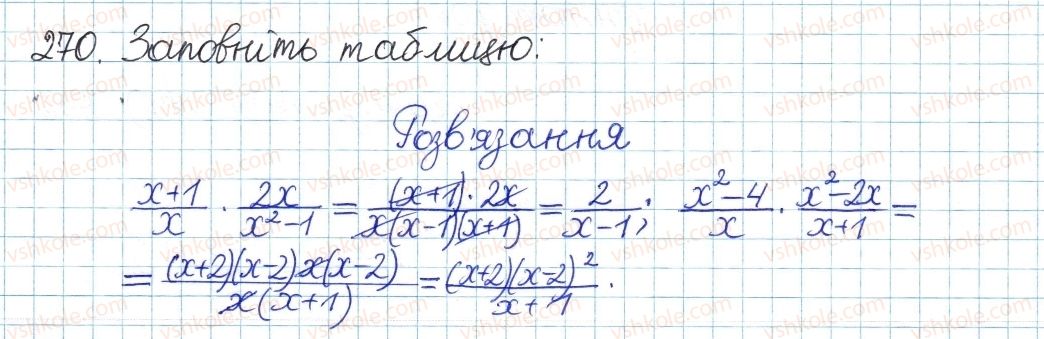 270. Заповніть таблицю:
Розв'язання
\frac{x+1}{x} \cdot \frac{2x}{x^2-1} = \frac{(x+1) \cdot 2x}{x(x-1)(x+1)} = \frac{2}{x-1}; \frac{x^2-4}{x} \cdot \frac{x^2-2x}{x+1} =
= \frac{(x+2)(x-2)x(x-2)}{x(x+1)} = \frac{(x+2)(x-2)^2}{x+1}.